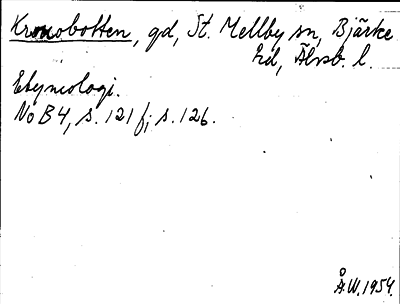 Kronobotten, gd, St. Mellby sn, Bjärke
hd, Älvsb. l.
Etymologi.
NoB 4, s. 121 f; s. 126.
Å.W. 1954.